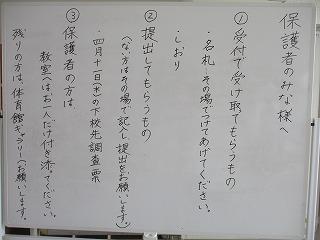 保護者のみな様へ
①受付で受け取てもらうもの
・名札、その場でつけてあげてください。
・しおり
②提出してもらうもの
(ない方はその場で記入し、提出をお願いします。)
・四月十一日(木)の下校先調査票
③保護者の方は
教室へはお一人だけ付き添ってください。
残りの方は、体育館ギャラリーへお願いします。